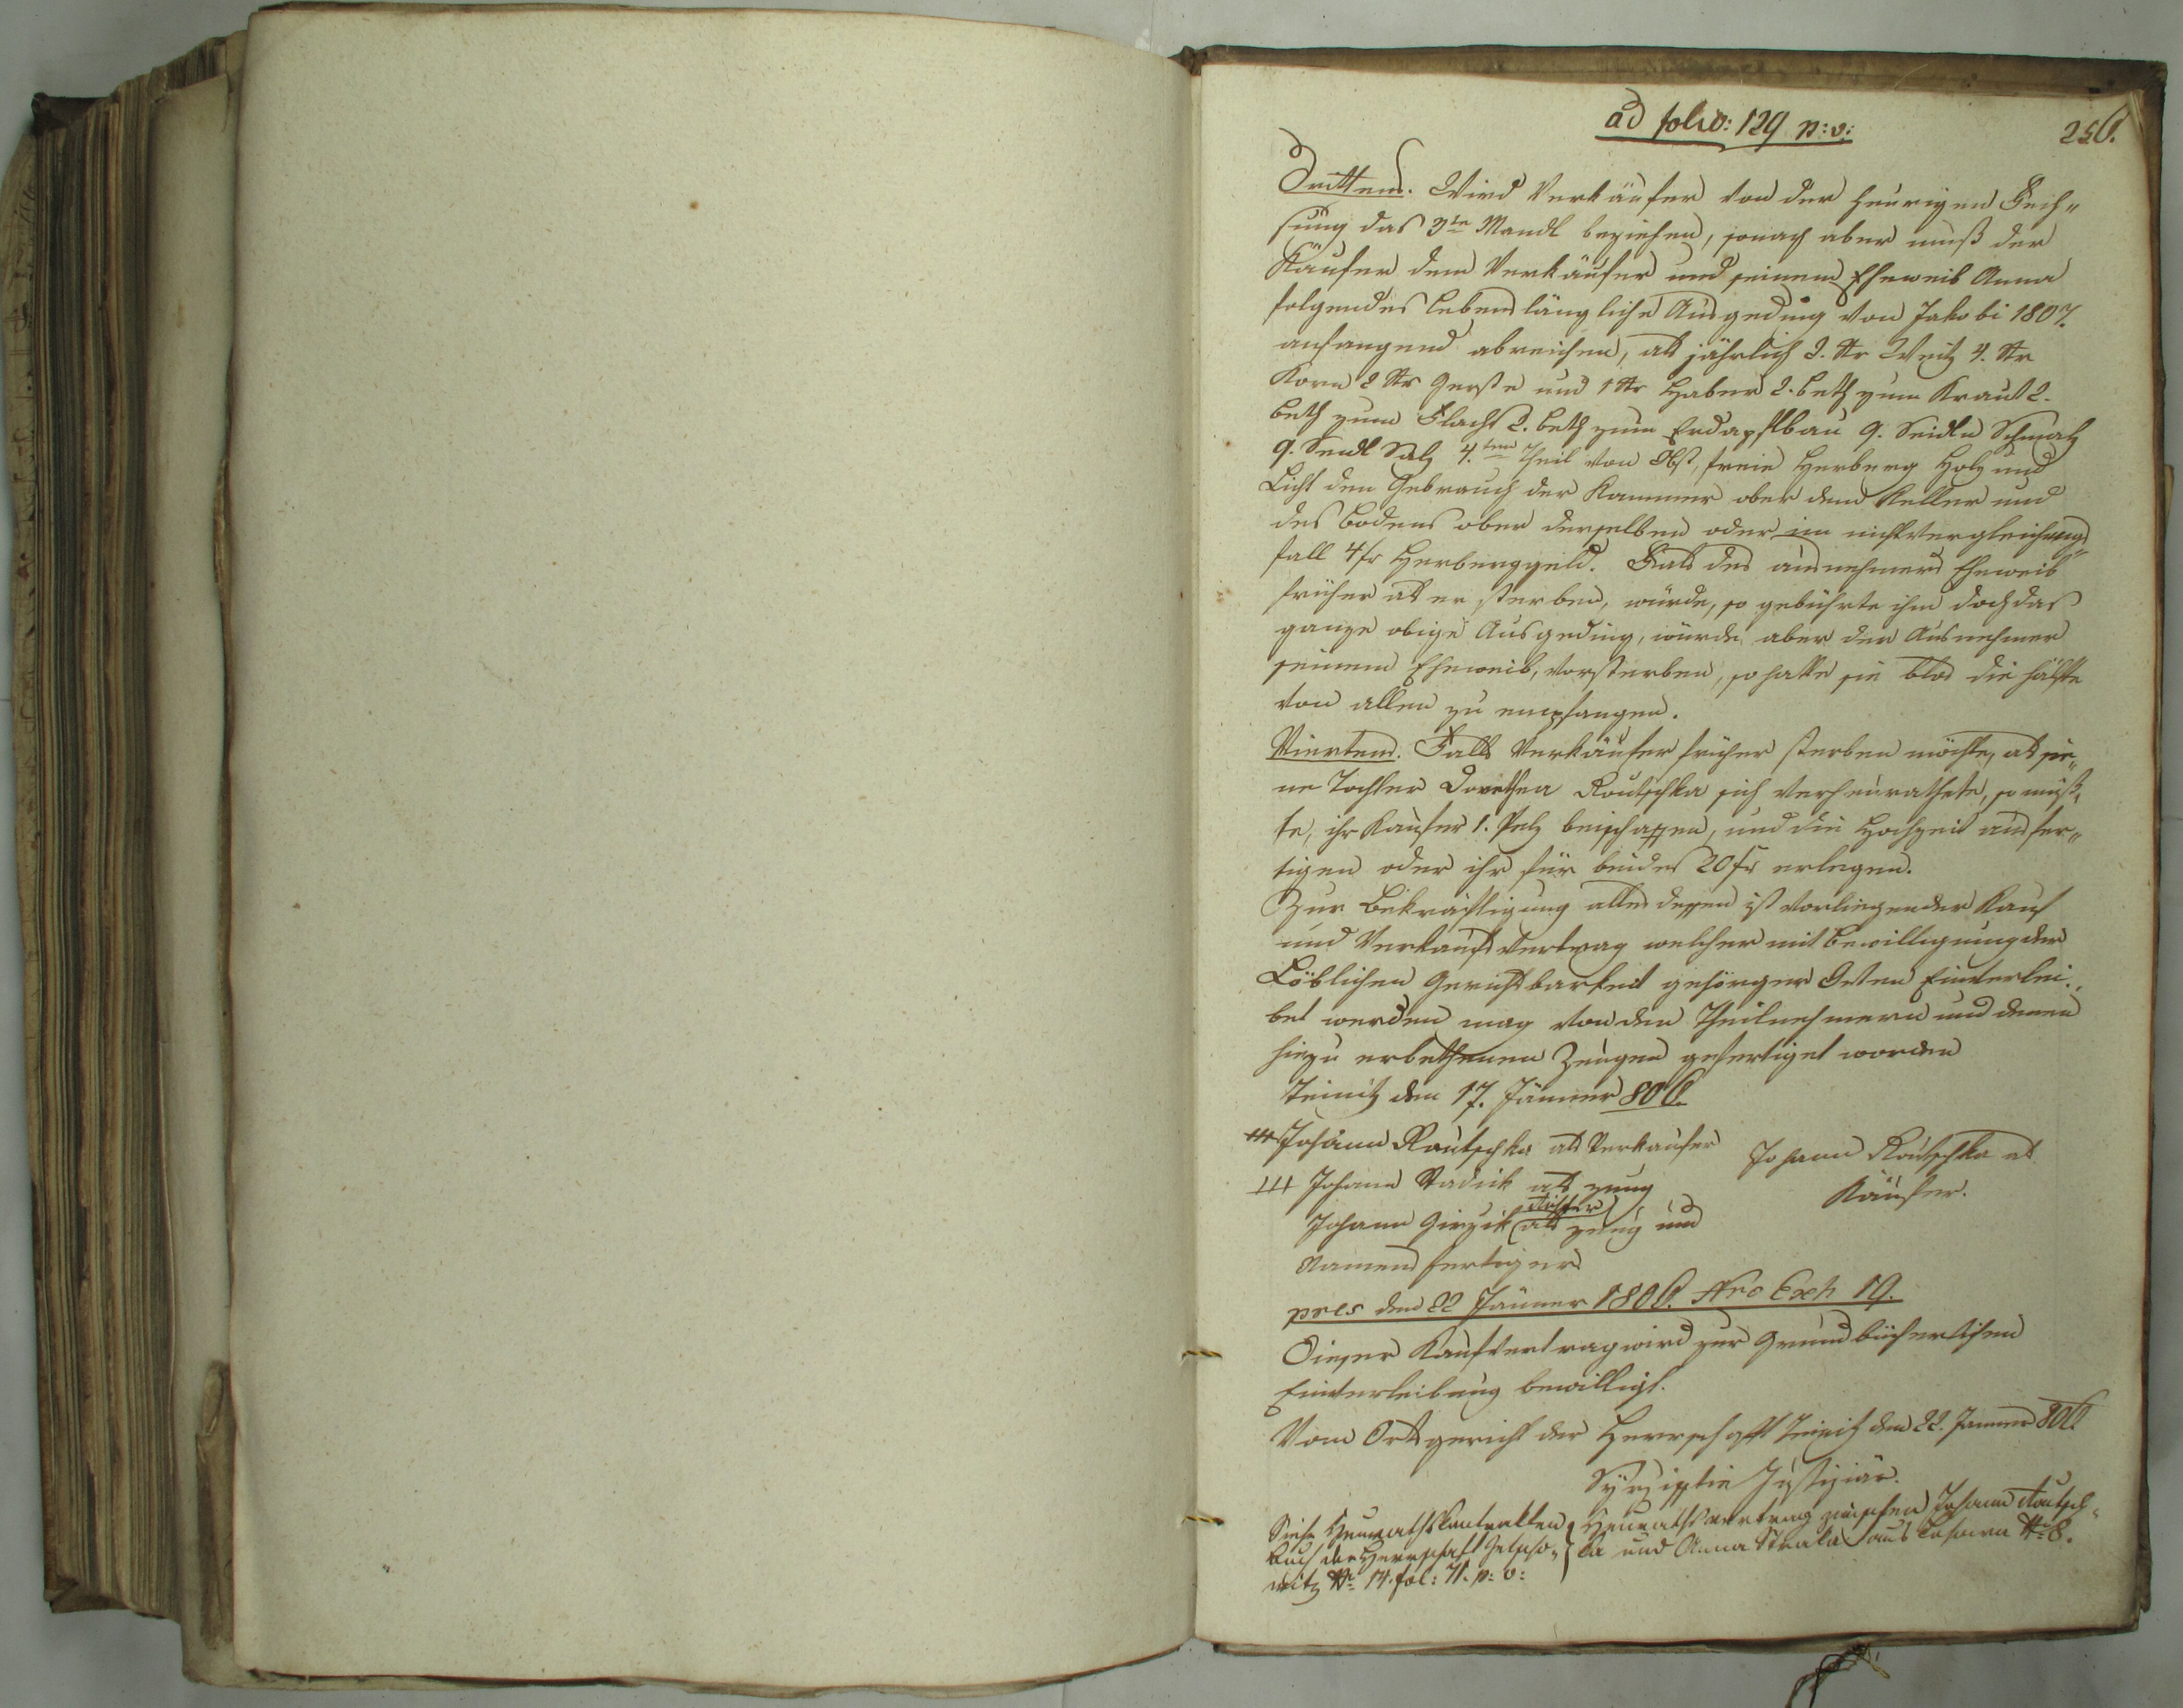 ad folio: 129 p: v:
256.
Drittens. Wird Verkäufer von der heurigen Fech„
sung das 3te Mandl beziehen, sonach aber muß der
Käufer dem Verkäufer und seinem Eheweib Anna
folgendes lebenslängliche Ausgeding von Jakobi 1807.
anfangend abreichen, als jährlich 3. Str Weitz 4. Str
Korn 2 Str Gerste und 1 Str Haber 2. beth zum Kraut 2.
beth zum Flachs 2. beth zum Erdapflbau 9. Seidln Schmalz
9. Seidl Salz 4.tem Theil von Obst, freie Herberg Holz und
Licht den Gebrauch der Kammer ober dem Keller und
des Bodens ober derselben oder im nichtvergleichungs
fall 4 fr Herberggeld. Falls des ausnehmers Eheweib
früher als er sterben, würde, so gebührte ihm doch das
ganze obige Ausgeding, würde aber der Ausnehmer
seinem Eheweib, vorsterben, so hatte sie blos die Hälfte
von allen zu empfangen.
Viertens. Falls Verkäufer früher sterben möchte, als sei„
ne Tochter Dorothea Routschka sich verheurathete, so müß„
te, ihr Käufer 1. Pelz beischaffen, und die Hochzeit ausfer„
tigen oder ihr für beides 20 fr erlegen.
Zur Bekräftigung alles dessen ist vorliegender Kauf
und Verkaufsvertrag welcher mit Bewilligung der
Löblichen Gerichtbarkeit gehörger Orten Einverlei„
bet werden mag von den Theilnehmern und denen
hiezu erbethenen Zeugen gefertiget worden
Teinitz den 17. Jänner 806.
+++ Johann Rautschka als Verkaufer
Johann Routschka als
Käufer.
+++ Johann Radick als zeug
Johann Girzik Richter als zeug und
Namensfertiger
pres den 22 Jänner 1806. Nro Exh 19.
Dieser Kaufvertrag wird zur Grundbücherlichen
Einverleibung bewilligt.
Vom Ortsgericht der Herrschaft Teinitz den 22. Janner 806.
Justiziär.
Siehe Heurathskontrakten
buch der Herrschaft
witz Nr. 14. fol: 71. p: v:
Heurathsvertrag zwischen Johann Routsch„
ka und Anna Straka aus Nr. 8.